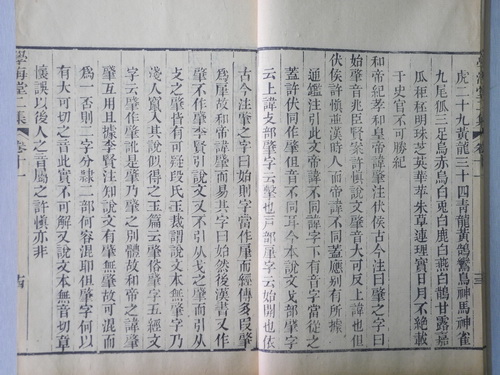 虎二十九黃龍三十四青龍黃鵠鸞鳥神馬神雀
九尾狐三足烏赤烏白兎白鹿白燕白鵲甘露嘉
瓜秬秠明珠芝英華苹朱草連理實日月不絶載
于史官不可勝紀
和帝紀孝和皇帝諱肇注伏侯古今注曰肇之字曰
始肇音兆臣賢案許慎說文肇音大可反上諱也但
伏侯許慎並漢時人而帝諱不同蓋應別有所據
通鑑注引此文帝諱不同諱字下有音字當從之
蓋許伏同作肇但音不同耳今本說文戈部肇字
云上諱支部肈字云擊也戸部肁字云始開也依
古今注肇之字曰始則字當作肁而經傳多叚肇
爲肁故和帝諱肇而易其字曰始然後漢書又作
肇不作肈李賢引說文又不引从戈之肇而引从
攴之肇皆有可疑段氏玉裁謂說文本無肇字乃
淺人竄入其說似得之玉篇云肇俗肈字五經文
字云肈作肇訛是肇乃肈之別體故和帝之諱肇
肈互用且據李賢注知說文有肈無肇故可混而
爲一否則二字分隸二部何容混耶但肇字何以
有大可切之音此實不可解又說文本無音切章
懷誤以後人之音屬之許慎亦非
學海堂二集
卷十一